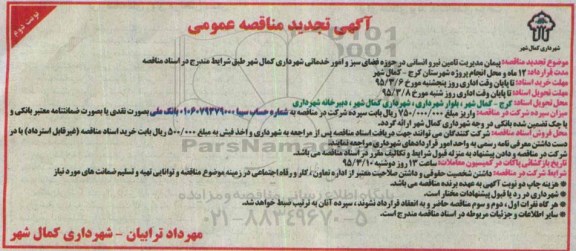 نوبت دوم
آگهی تجدید مناقصه عمومی
شهرداری کمال شهر
موضوع تجدید مناقصه: پیمان مدیریت تامین نیرو انسانی در حوزه فضای سبز و امور خدماتی شهرداری کمال شهر طبق شرایط مندرج در اسناد مناقصه
مدت قرارداد: ۱۲ ماه و محل انجام پروژه شهرستان کرج - کمال شهر
مهلت خرید اسناد: تا پایان وقت اداری روز پنجشنبه مورخ ۹۵/۳/۶
مهلت تحویل اسناد: تا پایان وقت اداری روز شنبه مورخ ۹۵/۳/۸
محل تحویل اسناد: کرج - کمال شهر، بلوار شهرداری، شهرداری کمال شهر، دبیرخانه شهرداری
میزان سپرده شرکت در مناقصه: واریز مبلغ ۷۵۰/۰۰۰/۰۰۰ ریال بابت سپرده شرکت در مناقصه به شماره حساب سیبا ۰۱۰۶۰۷۹۴۷۹۰۰۰ بانک ملی بصورت نقدی یا بصورت ضمانتنامه معتبر بانکی و یا چک تضمین شده بانکی در وجه شهرداری کمال شهر ارائه گردد.
محل فروش اسناد مناقصه: شرکت کنندگان می توانند جهت دریافت اسناد مناقصه پس از مراجعه به شهرداری و واخذ فیش به مبلغ ۵۰۰/۰۰۰ ریال بابت خرید اسناد مناقصه (غیر قابل استرداد) با در دست داشتن معرفی نامه رسمی به واحد امور قراردادهای شهرداری مراجعه نمایند.
شرکت در مناقصه و دادن پیشنهاد به منزله قبول شرایط و تکالیف مقرر در اسناد مناقصه می باشد.
تاریخ بازگشائی پاکات در کمیسیون معاملات: ساعت ۱۳ روز دوشنبه ۹۵/۳/۱۰
شرایط شرکت در مناقصه: داشتن شخصیت حقوقی و داشتن صلاحیت معتبر از اداره تعاون، کار و رفاه اجتماعی در زمینه موضوع مناقصه و توانایی تهیه و تسلیم ضمانت های مورد نیاز
* هزینه چاپ دو نوبت آگهی به عهده برنده مناقصه می باشد.
* شهرداری در رد یا قبول پیشنهادات مختار است.
* هر گاه نفرات اول، دوم و سوم مناقصه حاضر و به انعقاد قرارداد نشوند، سپرده آنان به ترتیب ضبط خواهد شد.
* سایر اطلاعات و جزئیات مربوطه در اسناد مناقصه مندرج است.
مهرداد ترابیان - شهرداری کمال شهر
ParsNamad
پایگاه اطلاع رسانی مناقصه و مزایده
۰۲۱-۸۸۳۴۹۶۷۰-۵